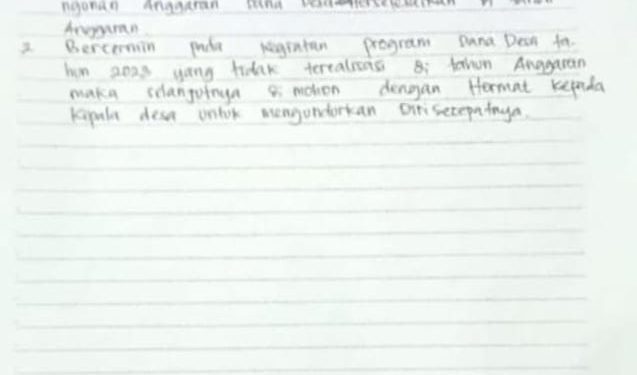 Anggaran Dana
Anggaran
2. Bercermin pada kegiatan program Dana Desa ta-
hun 2023 yang tidak terealisasi di tahun Anggaran
maka selanjutnya di mohon dengan Hormat kepada
kepala desa untuk mengundorkan Diri secepatnya.